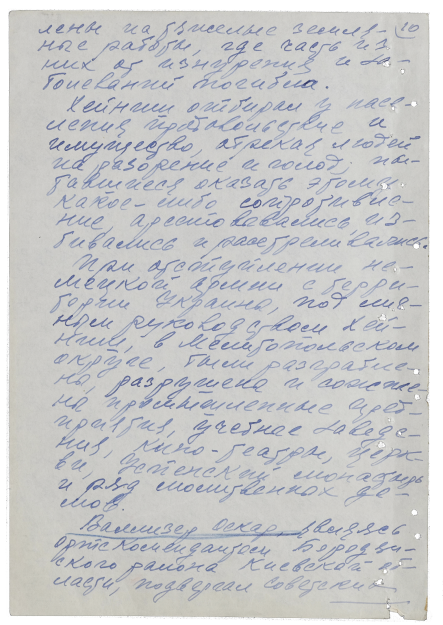 лены на тяжелые земля- 10
ные работы, где часть из
них от изнурения и за-
болеваний погибла.
Хейниш отбирал у насе-
ления продовольствие и
имущество, обрекая людей
на разорение и голод, пы-
тавшиеся оказать этому
какое-либо сопротивле-
ние, арестовывались из-
бивались и расстреливались.
При отступлении не-
мецкой армии с терри-
тории Украины, под лич-
ным руководством Хей-
ниш, в Мелитопольском
округе, были разграбле-
ны, разрушены и сожже-
ны промышленные пред-
приятия, учебные заведе-
ния, кино-театры, церк-
ви, Успенский монастырь
и ряд молитвенных до-
мов.
Валлизер Оскар являясь
ортскомендантом Бородян-
ского района Киевской об-
ласти, подвергал советских